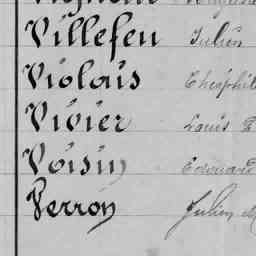 Villefeu Julien
Violais Théophile
Vivier Louis
Voisin Edouard
Verron Julien